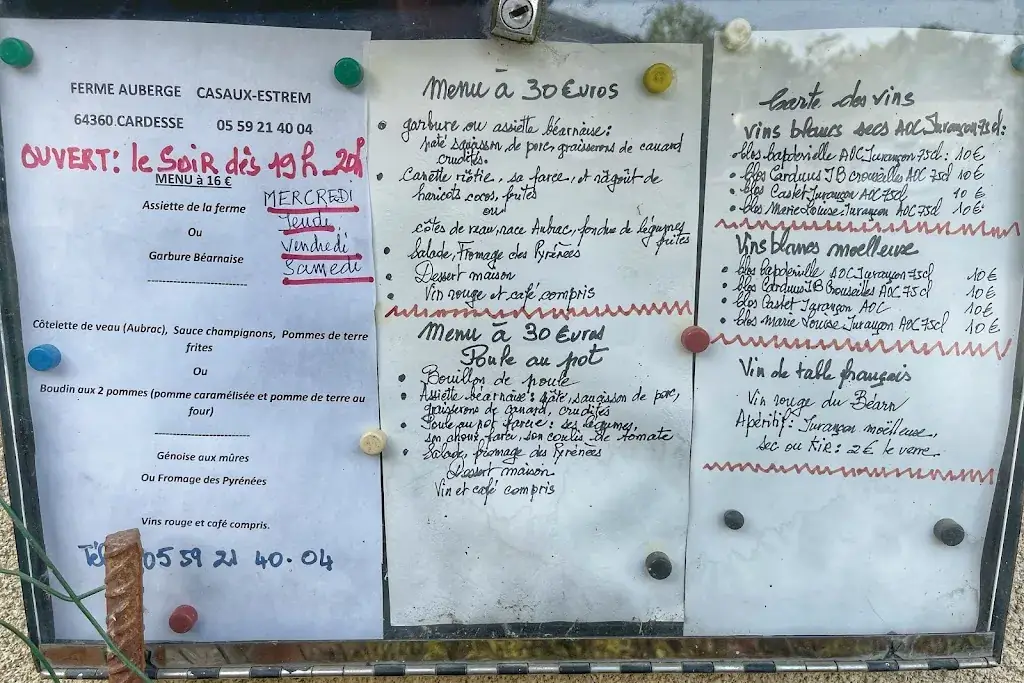 FERME AUBERGE CASAUX-ESTREM
64360 CARDESSE 05 59 21 40 04
OUVERT: le SOIR dès 19h 20h
MENU à 16 €
MERCREDI
Jeudi
Vendredi
Samedi
Assiette de la ferme
Ou
Garbure Béarnaise
Côtelette de veau (Aubrac), Sauce champignons, Pommes de terre
frites
Ou
Boudin aux 2 pommes (pomme caramélisée et pomme de terre au
four)
Génoise aux mûres
Ou Fromage des Pyrénées
Vins rouge et café compris.
Tél 05 59 21 40.04
Menu à 30 Euros
garbure ou assiette béarnaise:
pâté saucisson de porc, graisserons de canard
crudités.
Canette rôtie, sa farce, et ragoût de
haricots cocos, frites
ou
côtes de veau, race Aubrac, fondue de légumes
frites
Salade, Fromage des Pyrénées
Dessert maison
Vin rouge et café compris
Menu à 30 Euros
Poule au pot
Bouillon de poule
Assiette béarnaise: pâté, saucisson de porc,
graisserons de canard, crudités
Poule au pot farcie: ses légumes,
son chou farci, son coulis de tomate
Salade, fromage des Pyrénées
Dessert maison
Vin et café compris
Carte des vins
vins blancs secs AOC Jurançon 75cl:
clos Lapoderielle AOC Jurançon 75cl: 10€
clos Carduus JB Crouseilles AOC 75cl 10€
clos Castet Jurançon AOC 75cl 10€
clos Marie-Louise Jurançon AOC 75cl 10€
Vins blancs moelleux
clos AOC Jurançon 75cl 10€
clos Carduus JB Crouseilles AOC 75cl 10€
clos Castet Jurançon AOC 10€
clos Marie Louise Jurançon AOC 75cl 10€
Vin de table français
Vin rouge du Béarn
Apéritif: Jurançon moëlleux,
sec ou KIR: 2€ le verre